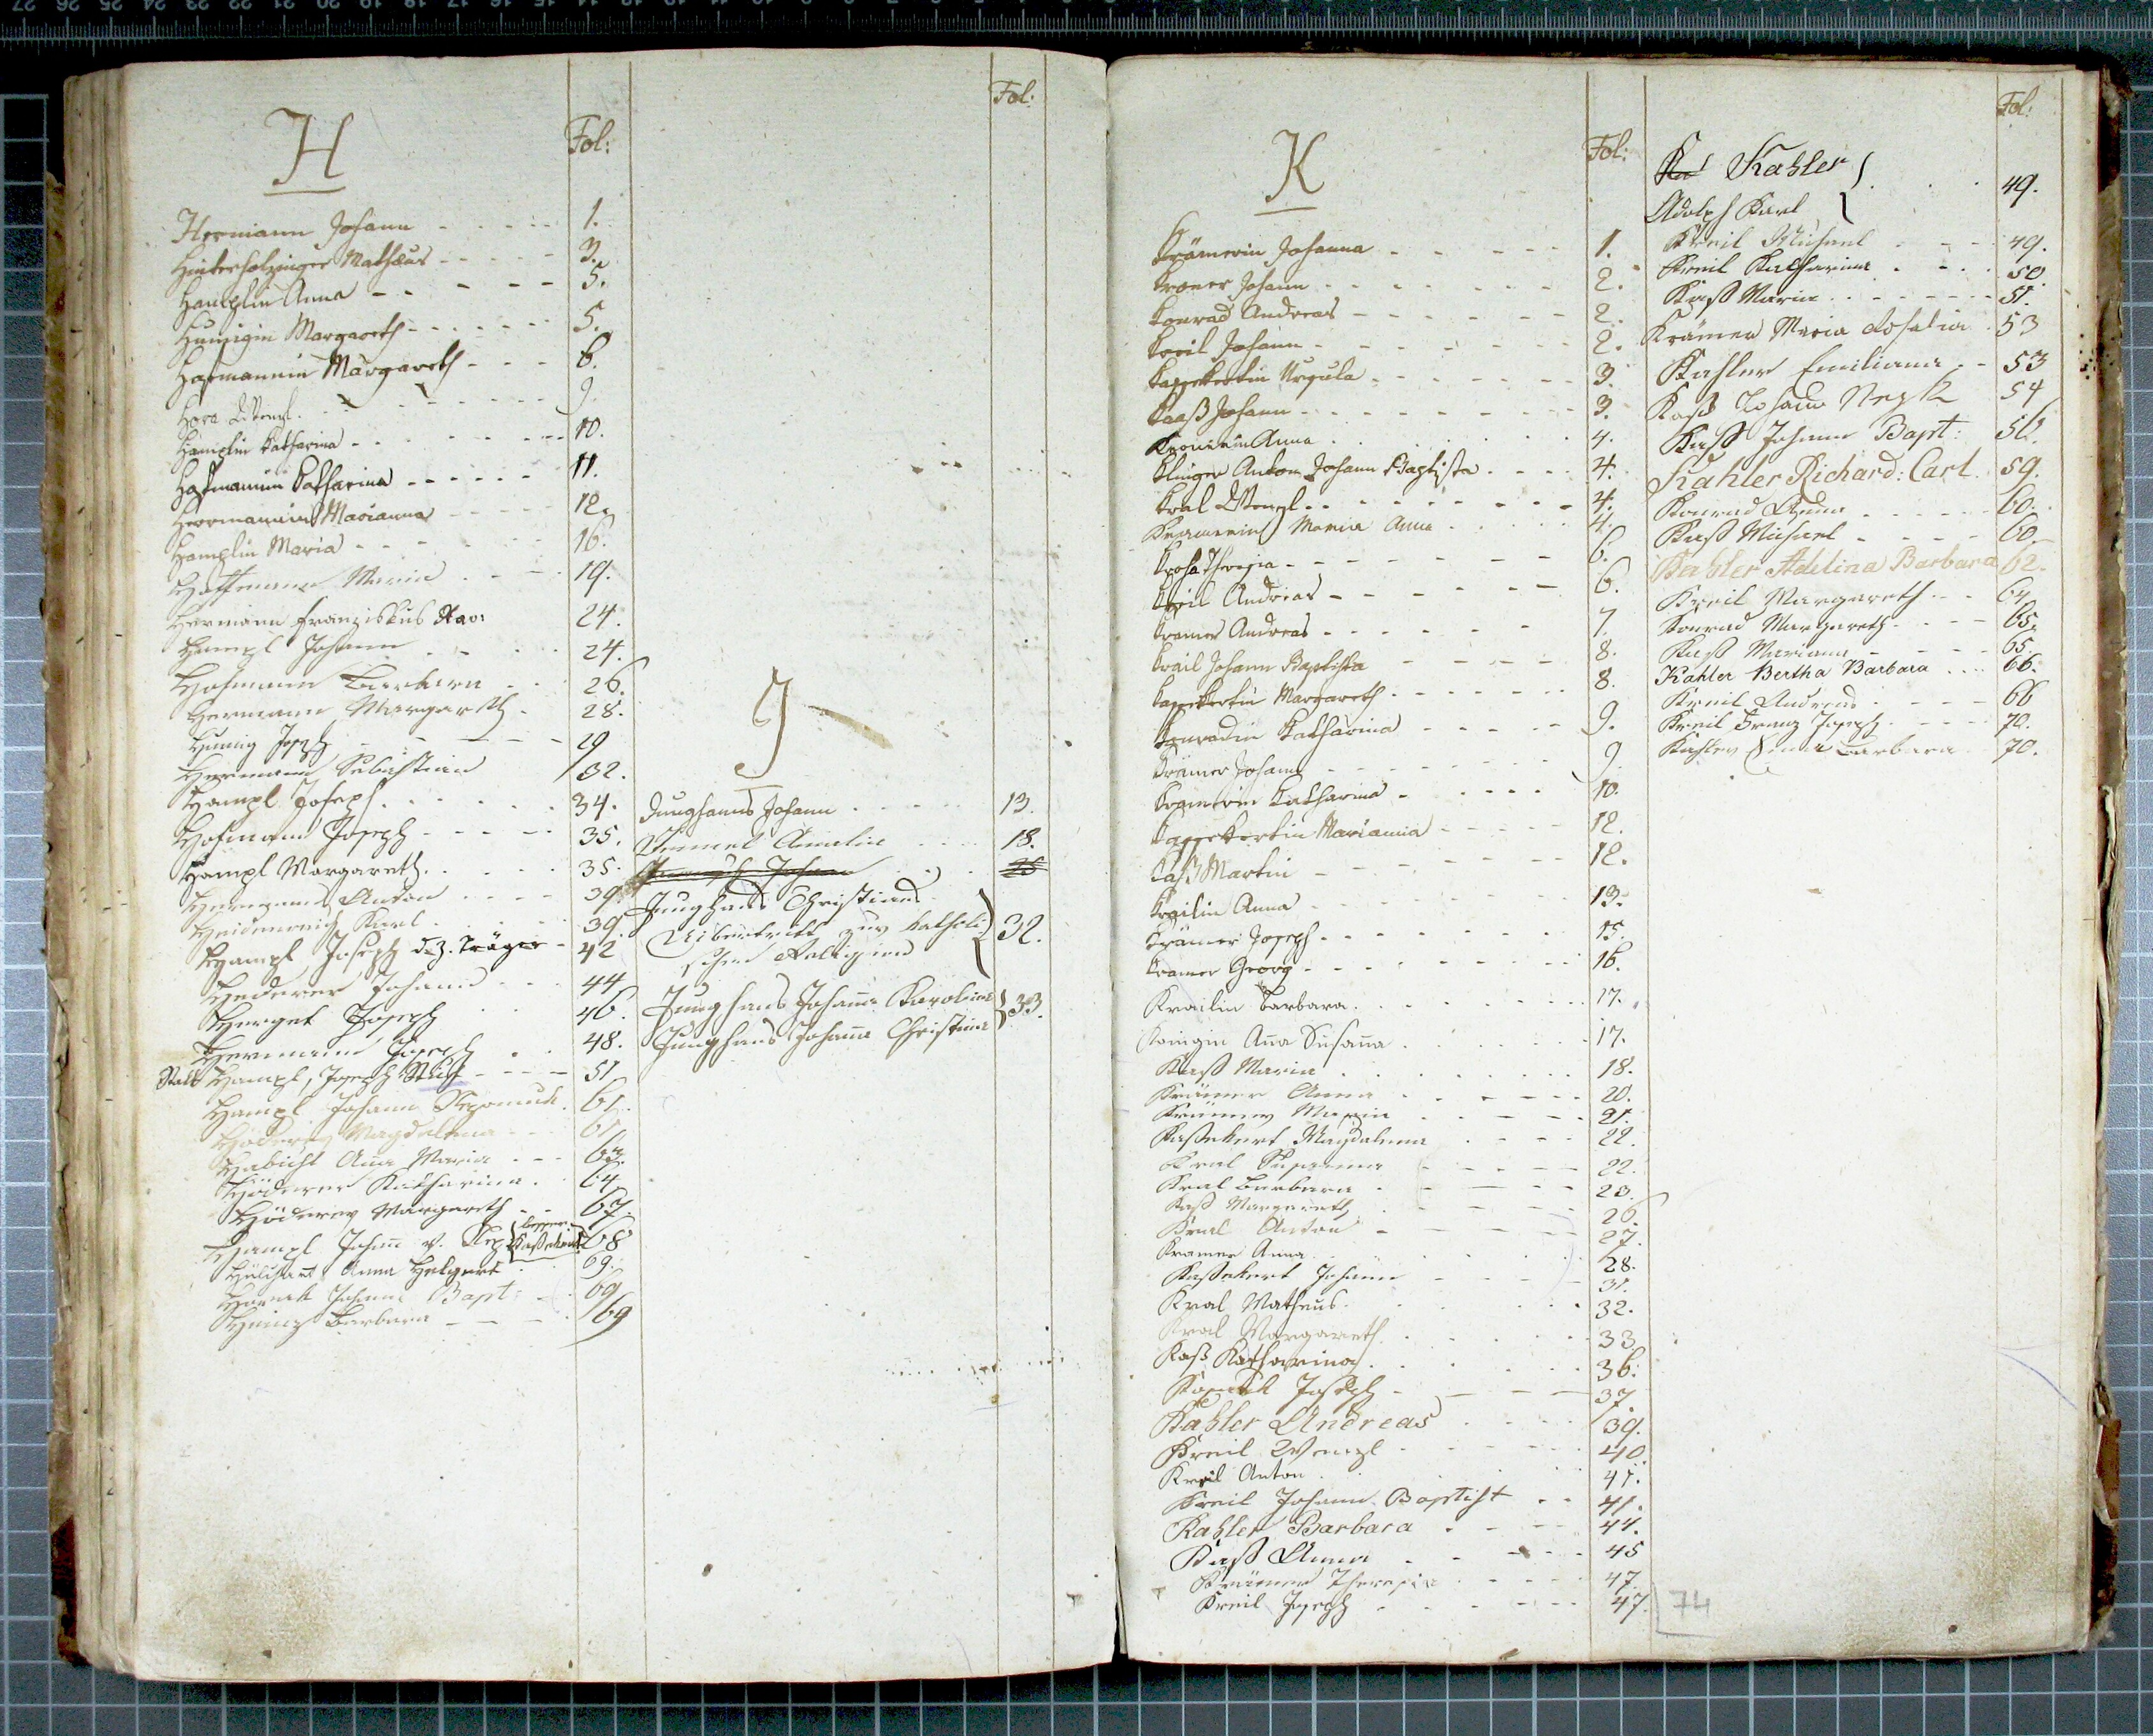 H
Fol:
Hermann Johann 1.
Hinterholzinger Mathæus 3.
Hamplin Anna 5.
Margareth 5.
Hofmannin Margareth 6.
Hora Wenzl 9.
Hamplin Katharina 10.
Hofmannin Katharina 11.
Herrmannin Marianna 12.
Hamplin Maria 16.
Hoffmann Maria 19.
Hermann Franziskus Xav: 24.
Hampl Johann 24.
Hofmann Barbara 26.
Hermann Margareth 28.
Joseph 29
Hermann Sebastian 32.
Hampl Joseph 34.
Hofmann Joseph 35.
Hampl Margareth 35.
Hermann Anton 39.
Heidenreich Karl 39.
Hampl Joseph d. z. Träger 42
Hederer Johann 44
Herget Joseph 46.
Hermann Joseph 48.
Statt Hampl, Joseph 51
Hampl Johann Nepomuk 61.
Höderer Magdalena 61
Habicht Aña Maria 63.
Höderer Katharina 64
Höderer Margareth 67.
Hampl Johañ v. Nep. 68
Anna 69.
Johann Bapt: 69
Heinz Barbara 69
Fol:
J
Junghanns Johann 13.
Amalia 18.
Johann 25
Junghans Christiana
Uibertritt zur katholi
schen Religion 32.
Junghans Johaña Karolina
Junghans Johaña Christina 33.
K
Fol:
Krämerin Johanna 1.
Kroner Johann 2.
Konrad Andreas 2.
Kreil Johann 2.
Kassekertin Ursula 3.
Kaaß Johann 3.
Anna 4.
Klinger Anton Johann Baptista 4.
Kral Wenzl 4.
Kramerin Maria Anna 4.
Theresia 6.
Kreil Andreas 6.
Kramer Andreas 7.
Krail Johann Baptista 8.
Kassekertin Margareth 8.
Konradin Katharina 9.
Krämer Johann 9
Kramerin Katharina 10.
Kassekertin Marianna 12.
Kaß Martin 12.
Krailin Anna 13.
Krämer Joseph 15.
Kramer Georg 16.
Krailin Barbara 17.
Königin Aña Susaña 17.
Kaß Maria 18.
Krämer Anna 20.
Krämer Maria 21.
Kassekert Magdalena 22.
Kral Susanna 22.
Kral Barbara 23.
Kaß Margareth 26.
Kral Anton 27.
Kramer Anna 28.
Kassekert Johann 31.
Kral Matheus 32.
Kral Margareth 33
Kaß Katharina 36.
Joseph 37.
Kahler Andreas 39.
Kreil Wenzl 40.
Kreil Anton 41.
Kreil Johann Baptist 41.
Kahler Barbara 44.
Kaß Anna 45
Krämer Theresia 47.
Kreil Joseph 47.
Fol:
Kahler
Adolph Karl 49.
Kreil Michael 49.
Kreil Katharina 50
Kaß Maria 51.
Krämer Maria Rosalia 53
Kahler Emiliana 53
Kaß Johann 54
Kaß Johann Bapt: 56.
Kahler Richard: Carl 59.
Konrad Anna 60.
Kaß Michael 60.
Kahler Adelina Barbara 62.
Kreil Margareth 64
Konrad Margareth 65.
Kaß Mariana 65
Kahler Bertha Barbara 66.
Kreil Andreas 66
Kreil Franz Joseph 70.
Kahler Barbara 70.
74